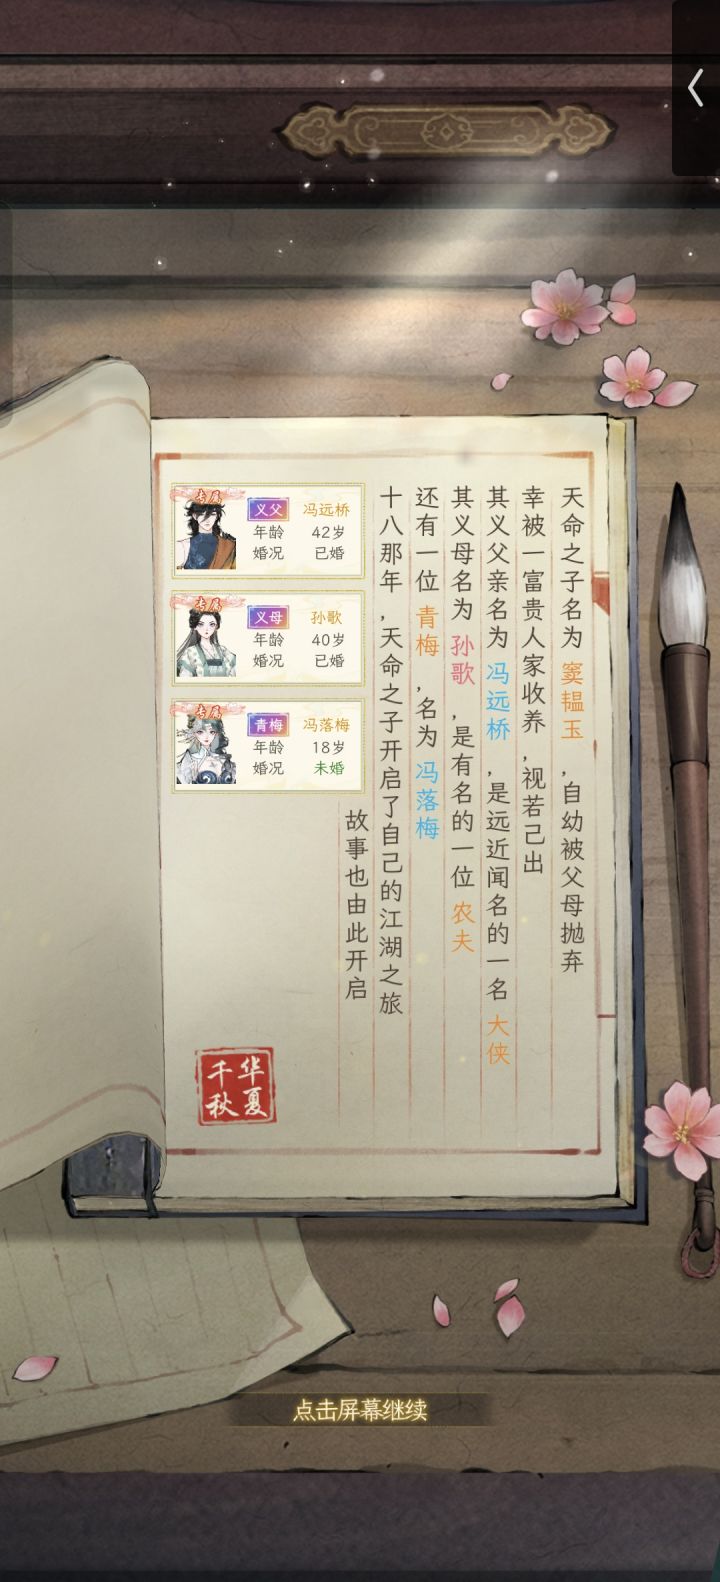 天命之子名为 窦韫玉 ,自幼被父母抛弃
幸被一富贵人家收养 ,视若己出
其义父亲名为 冯远桥 ,是远近闻名的一名 大侠
其义母名为 孙歌 ,是有名的一位 农夫
还有一位 青梅 ,名为 冯落梅
十八那年 ,天命之子开启了自己的江湖之旅
故事也由此开启
专属
义父 冯远桥
年龄 42岁
婚况 已婚
专属
义母 孙歌
年龄 40岁
婚况 已婚
专属
青梅 冯落梅
年龄 18岁
婚况 未婚
华夏
千秋
点击屏幕继续